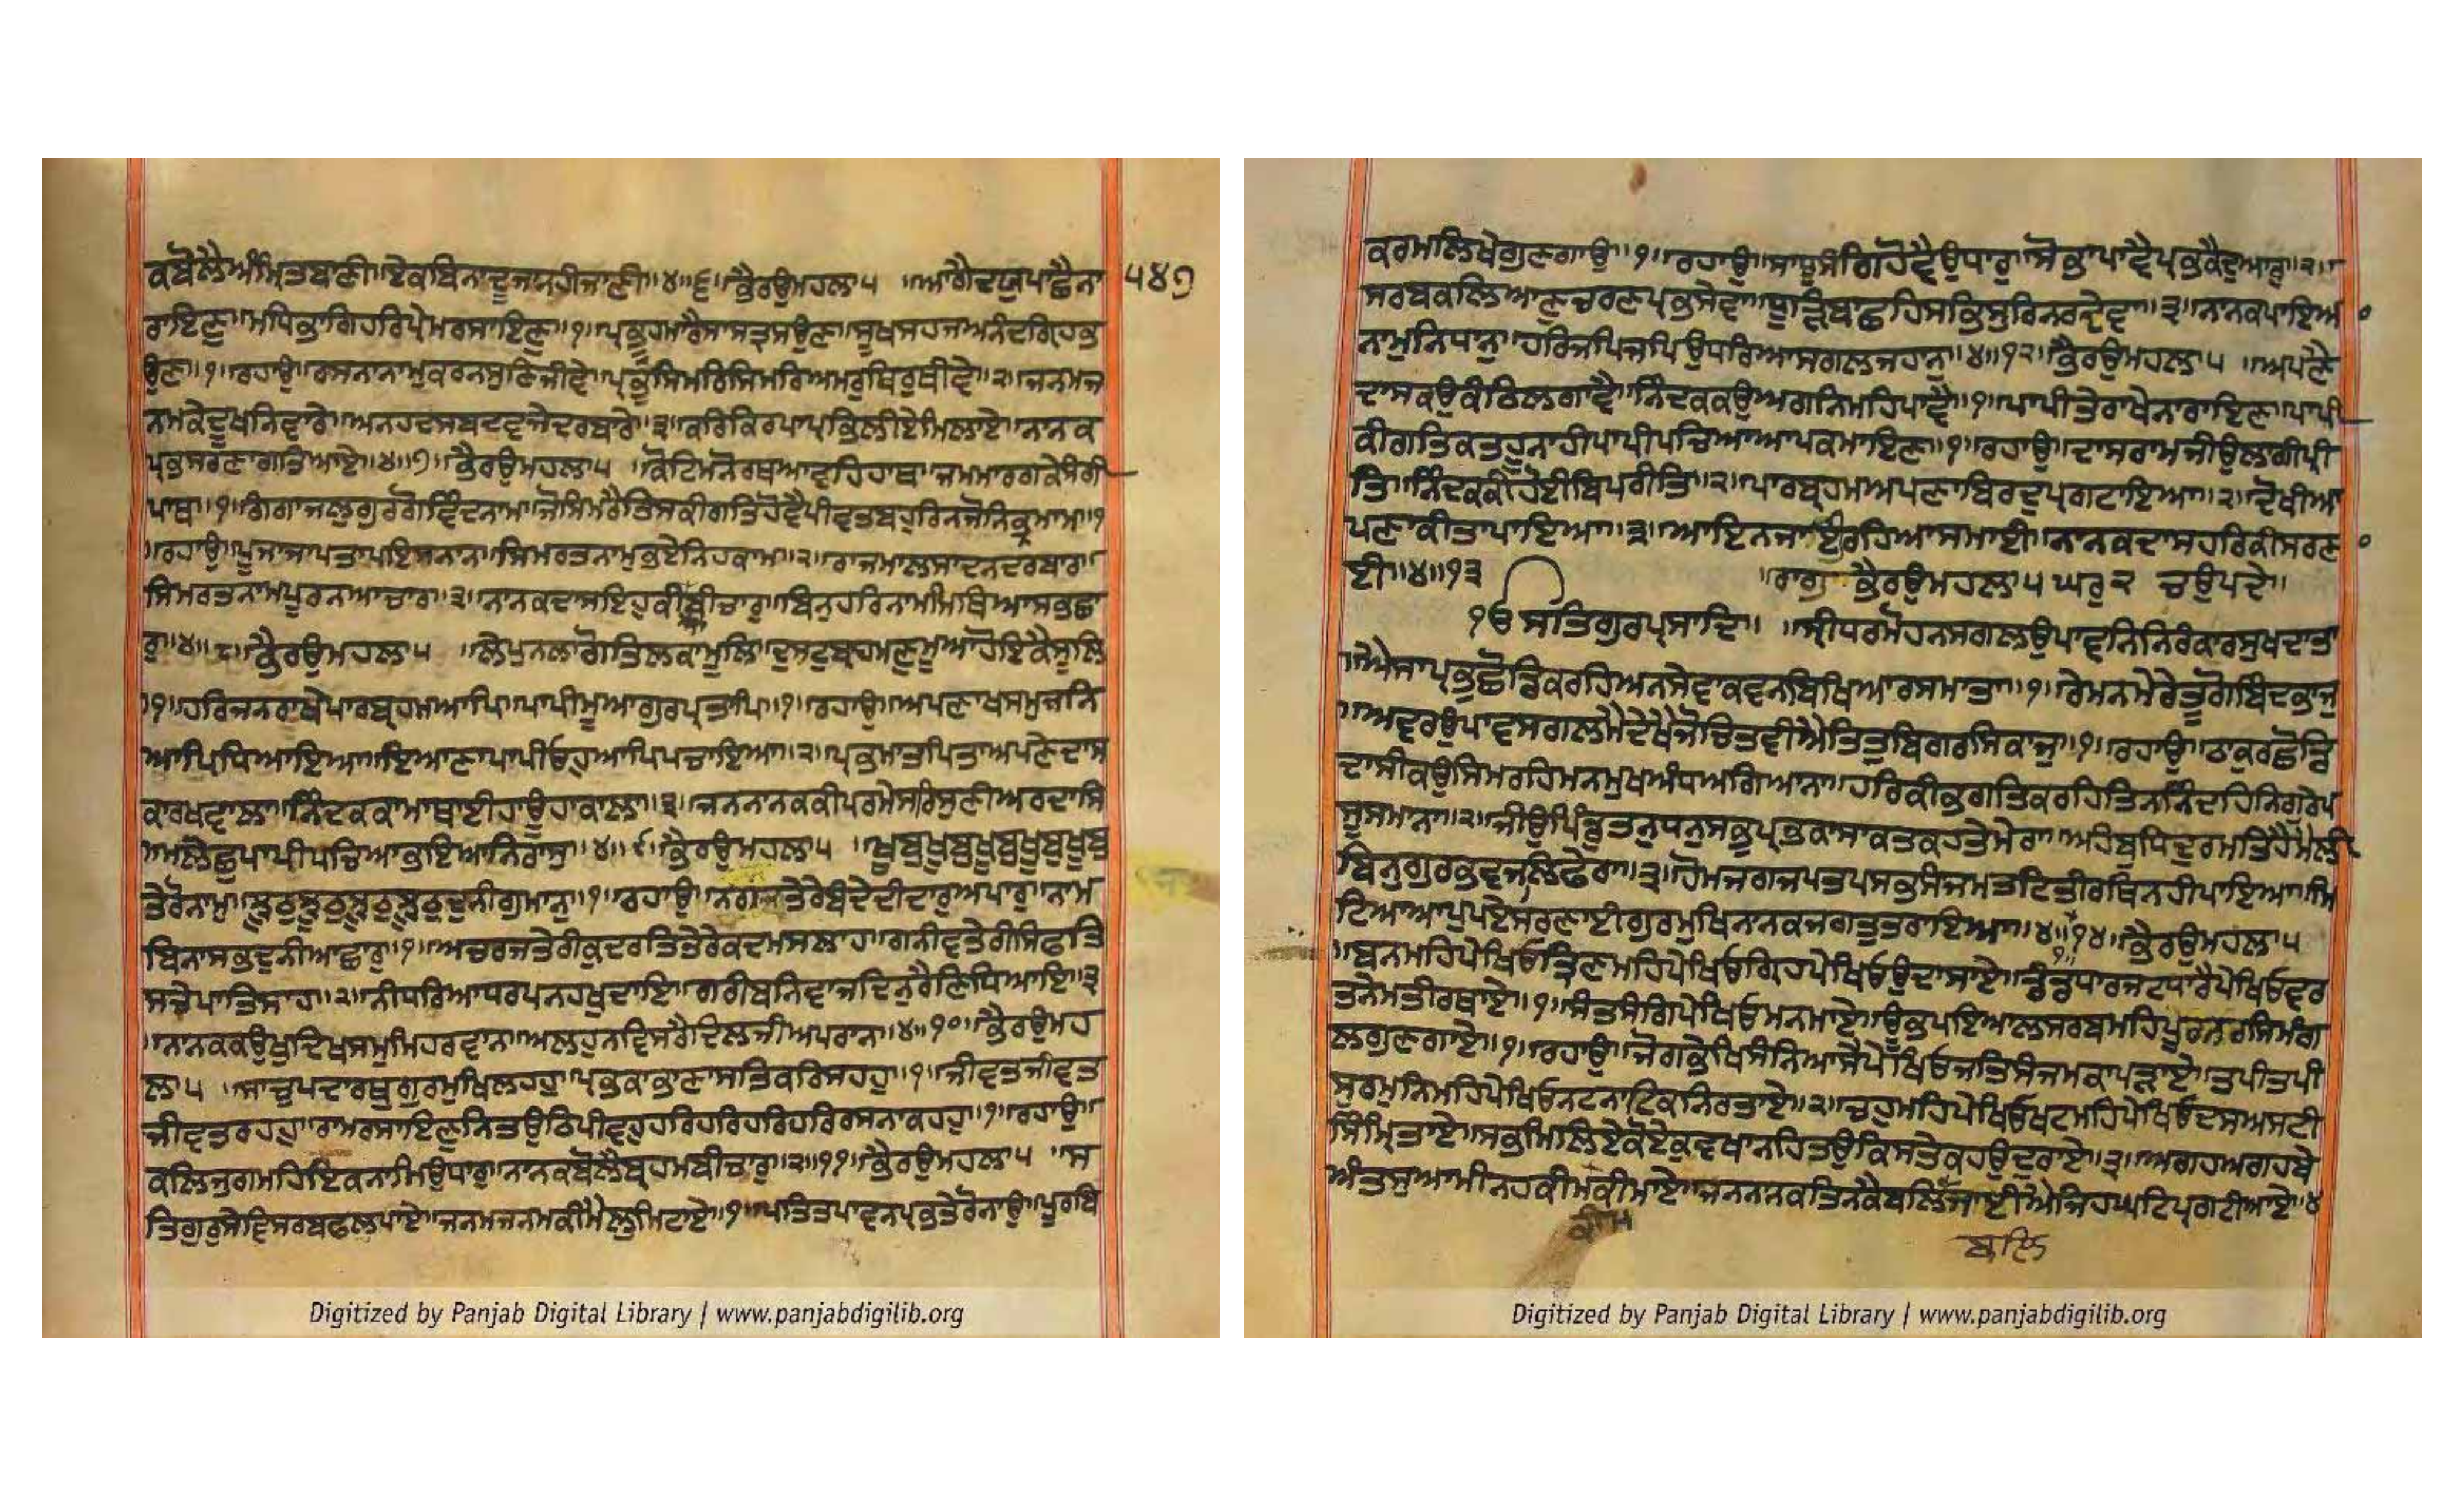 ਕਬੋਲੈਅੰਮ੍ਰਿਤਬਾਣੀ॥ਏਕਬਿਨਾਦੂਜਨਹੀਜਾਣੀ॥੪॥੬॥ਭੈਰਉਮਹਲਾ੫ ॥ਆਗੈਦਯੁਪਾਛੈਨਾ ੫੪੭
ਰਾਇਣ॥ਮਧਿਭਾਗਿਹਰਿਪ੍ਰੇਮਰਸਾਇਣ॥੧॥ਪ੍ਰਭੂਹਮਾਰੈਸਾਸਤ੍ਰਸਉਣ॥ਸੂਖਸਹਜਆਨੰਦਗ੍ਰਿਹਭ
ਉਣ॥੧॥ਰਹਾਉ॥ਰਸਨਾਨਾਮੁਕਰਨਸੁਣਿਜੀਵੇ॥ਪ੍ਰਭੁਸਿਮਰਿਸਿਮਰਿਅਮਰੁਥਿਰੁਥੀਵੇ॥੨॥ਜਨਮਜ
ਨਮਕੇਦੂਖਨਿਵਾਰੇ॥ਅਨਹਦਸਬਦਵਜੇਦਰਬਾਰੇ॥੩॥ਕਰਿਕਿਰਪਾਪ੍ਰਭਿਲੀਏਮਿਲਾਏ॥ਨਾਨਕ
ਪ੍ਰਭਸਰਣਾਗਤਿਆਏ॥੪॥੭॥ਭੈਰਉਮਹਲਾ੫ ॥ਕੋਟਿਮਨੋਰਥਆਵਹਿਹਾਥ॥ਜਮਮਾਰਗਕੇਸੰਗੀ
ਪਾਥ॥੧॥ਗੰਗਾਜਲੁਗੁਰਗੋਵਿੰਦਨਾਮ॥ਜੋਸਿਮਰੈਤਿਸਕੀਗਤਿਹੋਵੈਪੀਵਤਬਹੁਰਿਨਜੋਨਿਭ੍ਰਮਾਮ॥੧
॥ਰਹਾਉ॥ਪੂਜਾਜਾਪਤਾਪਇਸਨਾਨ॥ਸਿਮਰਤਨਾਮੁਭਏਨਿਹਕਾਮ॥੨॥ਰਾਜਮਾਲਸਾਦਨਦਰਬਾਰ॥
ਸਿਮਰਤਨਾਮਪੂਰਨਆਚਾਰ॥੩॥ਨਾਨਕਦਾਸਇਹੁਕੀਆਬੀਚਾਰੁ॥ਬਿਨੁਹਰਿਨਾਮਮਿਥਿਆਸਭਛਾ
ਰੁ॥੪॥੮॥ਭੈਰਉਮਹਲਾ੫ ॥ਲੇਪੁਨਲਾਗੋਤਿਲਕਾਮੂਲਿ॥ਦੁਸਟੁਬ੍ਰਹਮਣੁਮੂਆਹੋਇਕੈਸੂਲਿ
॥੧॥ਹਰਿਜਨਰਾਖੇਪਾਰਬ੍ਰਹਮਿਆਪਿ॥ਪਾਪੀਮੂਆਗੁਰਪ੍ਰਤਾਪਿ॥੧॥ਰਹਾਉ॥ਅਪਣਾਖਸਮੁਜਨਿ
ਆਪਿਧਿਆਇਆ॥ਇਆਣਾਪਾਪੀਓਹੁਆਪਿਪਚਾਇਆ॥੨॥ਪ੍ਰਭਮਾਤਪਿਤਾਅਪਣੇਦਾਸ
ਕਾਰਖਵਾਲਾ॥ਨਿੰਦਕਕਾਮਾਥਾਈਹਾਊਹਾਕਾਲਾ॥੩॥ਜਨਨਾਨਕਕੀਪਰਮੇਸਰਿਸੁਣੀਅਰਦਾਸਿ
॥ਮਲੇਛੁਪਾਪੀਪਚਿਆਭਇਆਨਿਰਾਸੁ॥੪॥੯॥ਭੈਰਉਮਹਲਾ੫ ॥ਖੂਬੁਖੂਬੁਖੂਬੁਖੂਬੁਖੂਬੁ
ਤੇਰੋਨਾਮੁ॥ਝੂਠੁਝੂਠੁਝੂਠੁਝੂਠੁਦੁਨੀਗੁਮਾਨੁ॥੧॥ਰਹਾਉ॥ਨਗਜਤੇਰੇਬੰਦੇਦੀਦਾਰੁਅਪਾਰੁ॥ਨਾਮ
ਬਿਨਾਸਭਦੁਨੀਆਛਾਰੁ॥੧॥ਅਚਰਜਤੇਰੀਕੁਦਰਤਿਤੇਰੇਕਦਮਸਲਾਹ॥ਗਨੀਵਤੇਰੀਸਿਫਤਿ
ਸਚੇਪਾਤਿਸਾਹ॥੨॥ਨੀਧਰਿਆਧਰਪਨਹਖੁਦਾਇ॥ਗਰੀਬਨਿਵਾਜਦਿਨੁਰੈਣਿਧਿਆਇ॥੩
॥ਨਾਨਕਕਉਖੁਦਿਖਸਮੁਮਿਹਰਵਾਨ॥ਅਲਹੁਨਵਿਸਰੈਦਿਲਜੀਅਪਰਾਨ॥੪॥੧੦॥ਭੈਰਉਮਹ
ਲਾ੫ ॥ਸਾਚੁਪਦਾਰਥੁਗੁਰਮੁਖਿਲਹਹੁ॥ਪ੍ਰਭਕਾਭਾਣਾਸਤਿਕਰਿਸਹਹੁ॥੧॥ਜੀਵਤਜੀਵਤ
ਜੀਵਤਰਹਹੁ॥ਰਾਮਰਸਾਇਣੁਨਿਤਉਠਿਪੀਵਹੁਹਰਿਹਰਿਹਰਿਹਰਿਰਸਨਾਕਹਹੁ॥੧॥ਰਹਾਉ॥
ਕਲਿਜੁਗਮਹਿਇਕਨਾਮਿਉਧਾਰੁ॥ਨਾਨਕਬੋਲੈਬ੍ਰਹਮਬੀਚਾਰੁ॥੨॥੧੧॥ਭੈਰਉਮਹਲਾ੫ ॥ਸ
ਤਿਗੁਰੁਸੇਵਿਸਰਬਫਲਪਾਏ॥ਜਨਮਜਨਮਕੀਮੈਲੁਮਿਟਾਏ॥੧॥ਪਤਿਤਪਾਵਨਪ੍ਰਭਤੇਰੋਨਾਉ॥ਪੂਰਬਿ
ਕਰਮਲਿਖੇਗੁਣਗਾਉ॥੧॥ਰਹਾਉ॥ਸਾਧੂਸੰਗਿਹੋਵੈਉਧਾਰੁ॥ਸੋਭਾਪਾਵੈਪ੍ਰਭਕੈਦੁਆਰੁ॥੨॥
ਸਰਬਕਲਿਆਣਚਰਣਪ੍ਰਭਸੇਵਾ॥ਧੂਰਿਬਾਛਹਿਸਭਿਸੁਰਿਨਰਦੇਵਾ॥੩॥ਨਾਨਕਪਾਇਆ
ਨਾਮੁਨਿਧਾਨੁ॥ਹਰਿਜਪਿਜਪਿਉਧਰਿਆਸਗਲਜਹਾਨੁ॥੪॥੧੨॥ਭੈਰਉਮਹਲਾ੫ ॥ਅਪਣੇ
ਦਾਸਕਉਕੰਠਿਲਗਾਵੈ॥ਨਿੰਦਕਕਉਅਗਨਿਮਹਿਪਾਵੈ॥੧॥ਪਾਪੀਤੇਰਾਖੇਨਾਰਾਇਣ॥ਪਾਪੀ
ਕੀਗਤਿਕਤਹੂਨਾਹੀਪਾਪੀਪਚਿਆਆਪਕਮਾਇਣ॥੧॥ਰਹਾਉ॥ਦਾਸਰਾਮਜੀਉਲਾਗੀਪ੍ਰੀ
ਤਿ॥ਨਿੰਦਕਕੀਹੋਈਬਿਪਰੀਤਿ॥੨॥ਪਾਰਬ੍ਰਹਮਅਪਣਾਬਿਰਦੁਪ੍ਰਗਟਾਇਆ॥੨॥ਦੋਖੀਅ
ਪਣਾਕੀਤਾਪਾਇਆ॥੩॥ਆਇਨਜਾਈਰਹਿਆਸਮਾਈ॥ਨਾਨਕਦਾਸਹਰਿਕੀਸਰਣ
ਈ॥੪॥੧੩ ॥ਰਾਗੁ ਭੈਰਉਮਹਲਾ੫ਘਰੁ੨ ਚਉਪਦੇ॥
ੴਸਤਿਗੁਰਪ੍ਰਸਾਦਿ॥ ॥ਸ੍ਰੀਧਰਮੋਹਨਸਗਲਉਪਾਵਨਨਿਰੰਕਾਰਸੁਖਦਾਤਾ
॥ਐਸਾਪ੍ਰਭੁਛੋਡਿਕਰਹਿਅਨਸੇਵਾਕਵਨਬਿਖਿਆਰਸਮਾਤਾ॥੧॥ਰੇਮਨਮੇਰੇਤੂਗੋਬਿੰਦਭਾਜੁ
॥ਅਵਰਉਪਾਵਸਗਲਮੈਦੇਖੇਜੋਚਿਤਵੀਐਤਿਤੁਬਿਗਰਸਿਕਾਜੁ॥੧॥ਰਹਾਉ॥ਠਾਕੁਰਛੋਡਿ
ਦਾਸੀਕਉਸਿਮਰਹਿਮਨਮੁਖਅੰਧਅਗਿਆਨਾ॥ਹਰਿਕੀਭਗਤਿਕਰਹਿਤਿਨਨਿੰਦਹਿਨਿਗੁਰੇਪ
ਸੂਸਮਾਨਾ॥੨॥ਜੀਉਪਿੰਡੁਤਨੁਧਨੁਸਭੁਪ੍ਰਭਕਾਸਾਕਤਕਹਤੇਮੇਰਾ॥ਅਹੰਬੁਧਿਦੁਰਮਤਿਹੈਮੈਲੀ
ਬਿਨੁਗੁਰਭਵਜਲਿਫੇਰਾ॥੩॥ਹੋਮਜਗਜਪਤਪਸਭਸੰਜਮਤਟਿਤੀਰਥਿਨਹੀਪਾਇਆ॥ਮਿ
ਟਿਆਆਪੁਪਏਸਰਣਾਈਗੁਰਮੁਖਿਨਾਨਕਜਗਤੁਤਰਾਇਆ॥੪॥੧॥੧੪॥ਭੈਰਉਮਹਲਾ੫
॥ਬਨਮਹਿਪੇਖਿਓਤ੍ਰਿਣਮਹਿਪੇਖਿਓਗ੍ਰਿਹਪੇਖਿਓਉਦਾਸਾਏ॥ਦੰਡਧਾਰਜਟਧਾਰੈਪੇਖਿਓਵਰ
ਤਨੇਮਤੀਰਥਾਏ॥੧॥ਸੰਤਸੰਗਿਪੇਖਿਓਮਨਮਾਏ॥ਊਭਪਇਆਲਸਰਬਮਹਿਪੂਰਨਰਸਿਮੰਗ
ਲਗੁਣਗਾਏ॥੧॥ਰਹਾਉ॥ਜੋਗਭੇਖਸੰਨਿਆਸੈਪੇਖਿਓਜਤਿਜੰਗਮਕਾਪੜਾਏ॥ਤਪੀਤਪੀ
ਸੁਰਮੁਨਿਮਹਿਪੇਖਿਓਨਟਨਾਟਿਕਨਿਰਤਾਏ॥੨॥ਚਹੁਮਹਿਪੇਖਿਓਖਟਮਹਿਪੇਖਿਓਦਸਅਸਟੀ
ਸਿੰਮ੍ਰਿਤਾਏ॥ਸਭਮਿਲਿਏਕੋਏਕੁਵਖਾਨਹਿਤਉਕਿਸਤੇਕਹਉਦੁਰਾਏ॥੩॥ਅਗਹਅਗਹਬੇ
ਅੰਤਸੁਆਮੀਨਹਕੀਮਕੀਮਾਏ॥ਜਨਨਾਨਕਤਿਨਕੈਬਲਿਜਾਈਐਜਿਹਘਟਿਪ੍ਰਗਟੀਆਏ॥੪
ਕੀਮ
ਬਲਿ
Digitized by Panjab Digital Library | www.panjabdigilib.org
Digitized by Panjab Digital Library | www.panjabdigilib.org